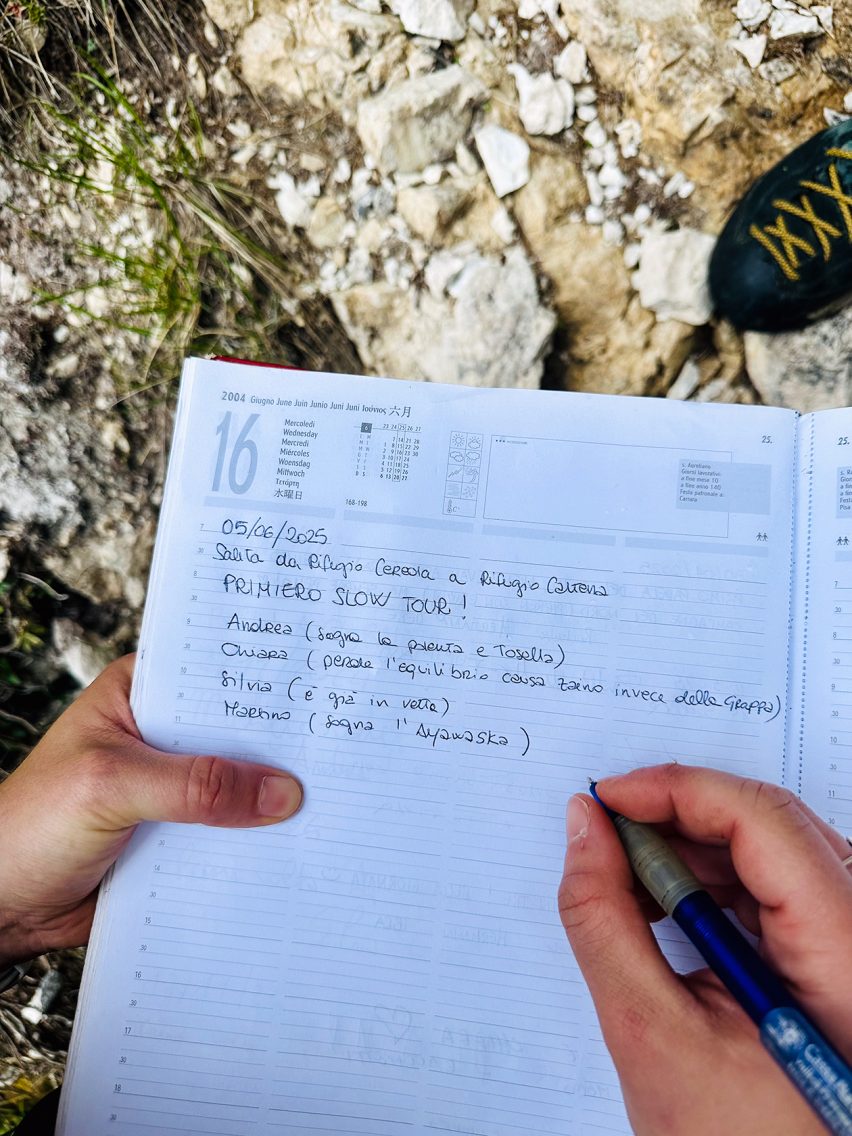 2004 Giugno June Juin Junio Juni Juni Ιούνιος 六月
16
Mercoledì
Wednesday
Mercredi
Miércoles
Woensdag
Mittwoch
Τετάρτη
水曜日
168-198
25.
s. Aureliano
Giorni lavorativi:
a fine mese 10
a fine anno 140
Festa patronale a:
Carrara
25.
05/06/2025
Salita da Rifugio Cereda a Rifugio
PRIMIERO SLOW TOUR!
Andrea (sogna la polenta e Tosella)
Chiara (perde l'equilibrio causa zaino invece della Grappa)
Silvia (è già in vetta)
Martino (sogna l'Ayawaska)